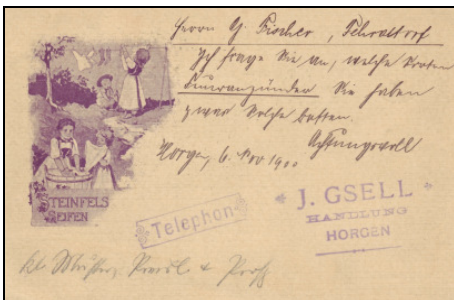 Herrn G. Fischer, Fehraltorf
Ich frage Sie an, welche Sorten
Feueranzünder Sie haben
was solche kosten.
Achtungsvoll
Horgen, 6. Nov 1900
STEINFELS
SEIFEN
Telephon
J. GSELL
HANDLUNG
HORGEN